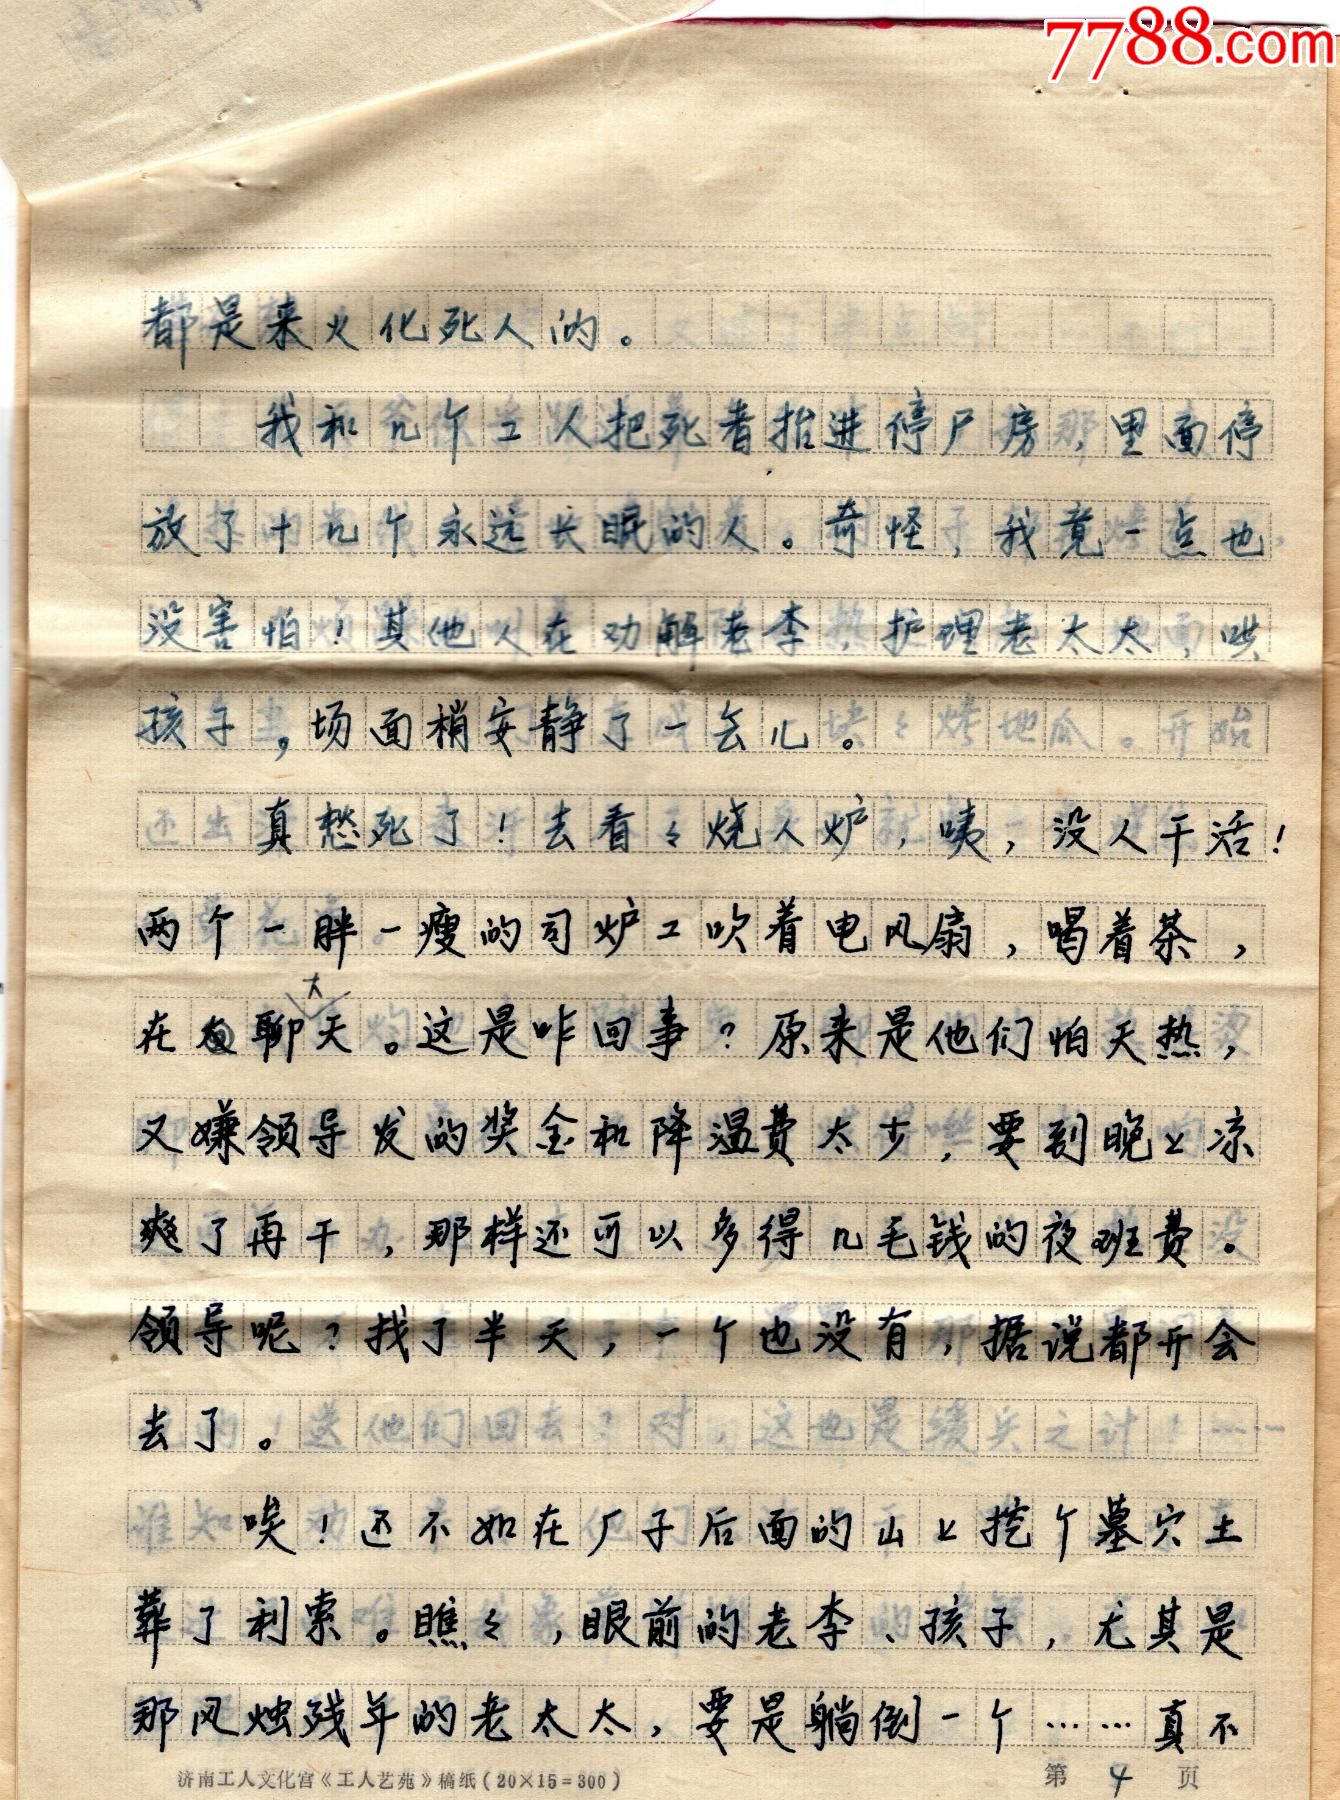 7788.com
都是来火化死人的。
我和几个工人把死者抬进停尸房，里面停
放了十几个永远长眠的人。奇怪，我竟一点也
没害怕！其他人在劝解老李，护理老太太，哄
孩子，场面稍安静了一会儿。
真愁死了！去看々烧人炉，咦，没人干活！
两个一胖一瘦的司炉工吹着电风扇，喝着茶，
大
在聊天。这是咋回事？原来是他们怕天热，
又嫌领导发的奖金和降温费太少，要到晚上凉
爽了再干，那样还可以多得几毛钱的夜班费。
领导呢？找了半天，一个也没有，据说都开会
去了。
唉！还不如在厂子后面的山上挖个墓穴土
葬了利索。瞧々，眼前的老李、孩子，尤其是
那风烛残年的老太太，要是躺倒一个……真不
济南工人文化宫《工人艺苑》稿纸（20×15=300）
第 4 页